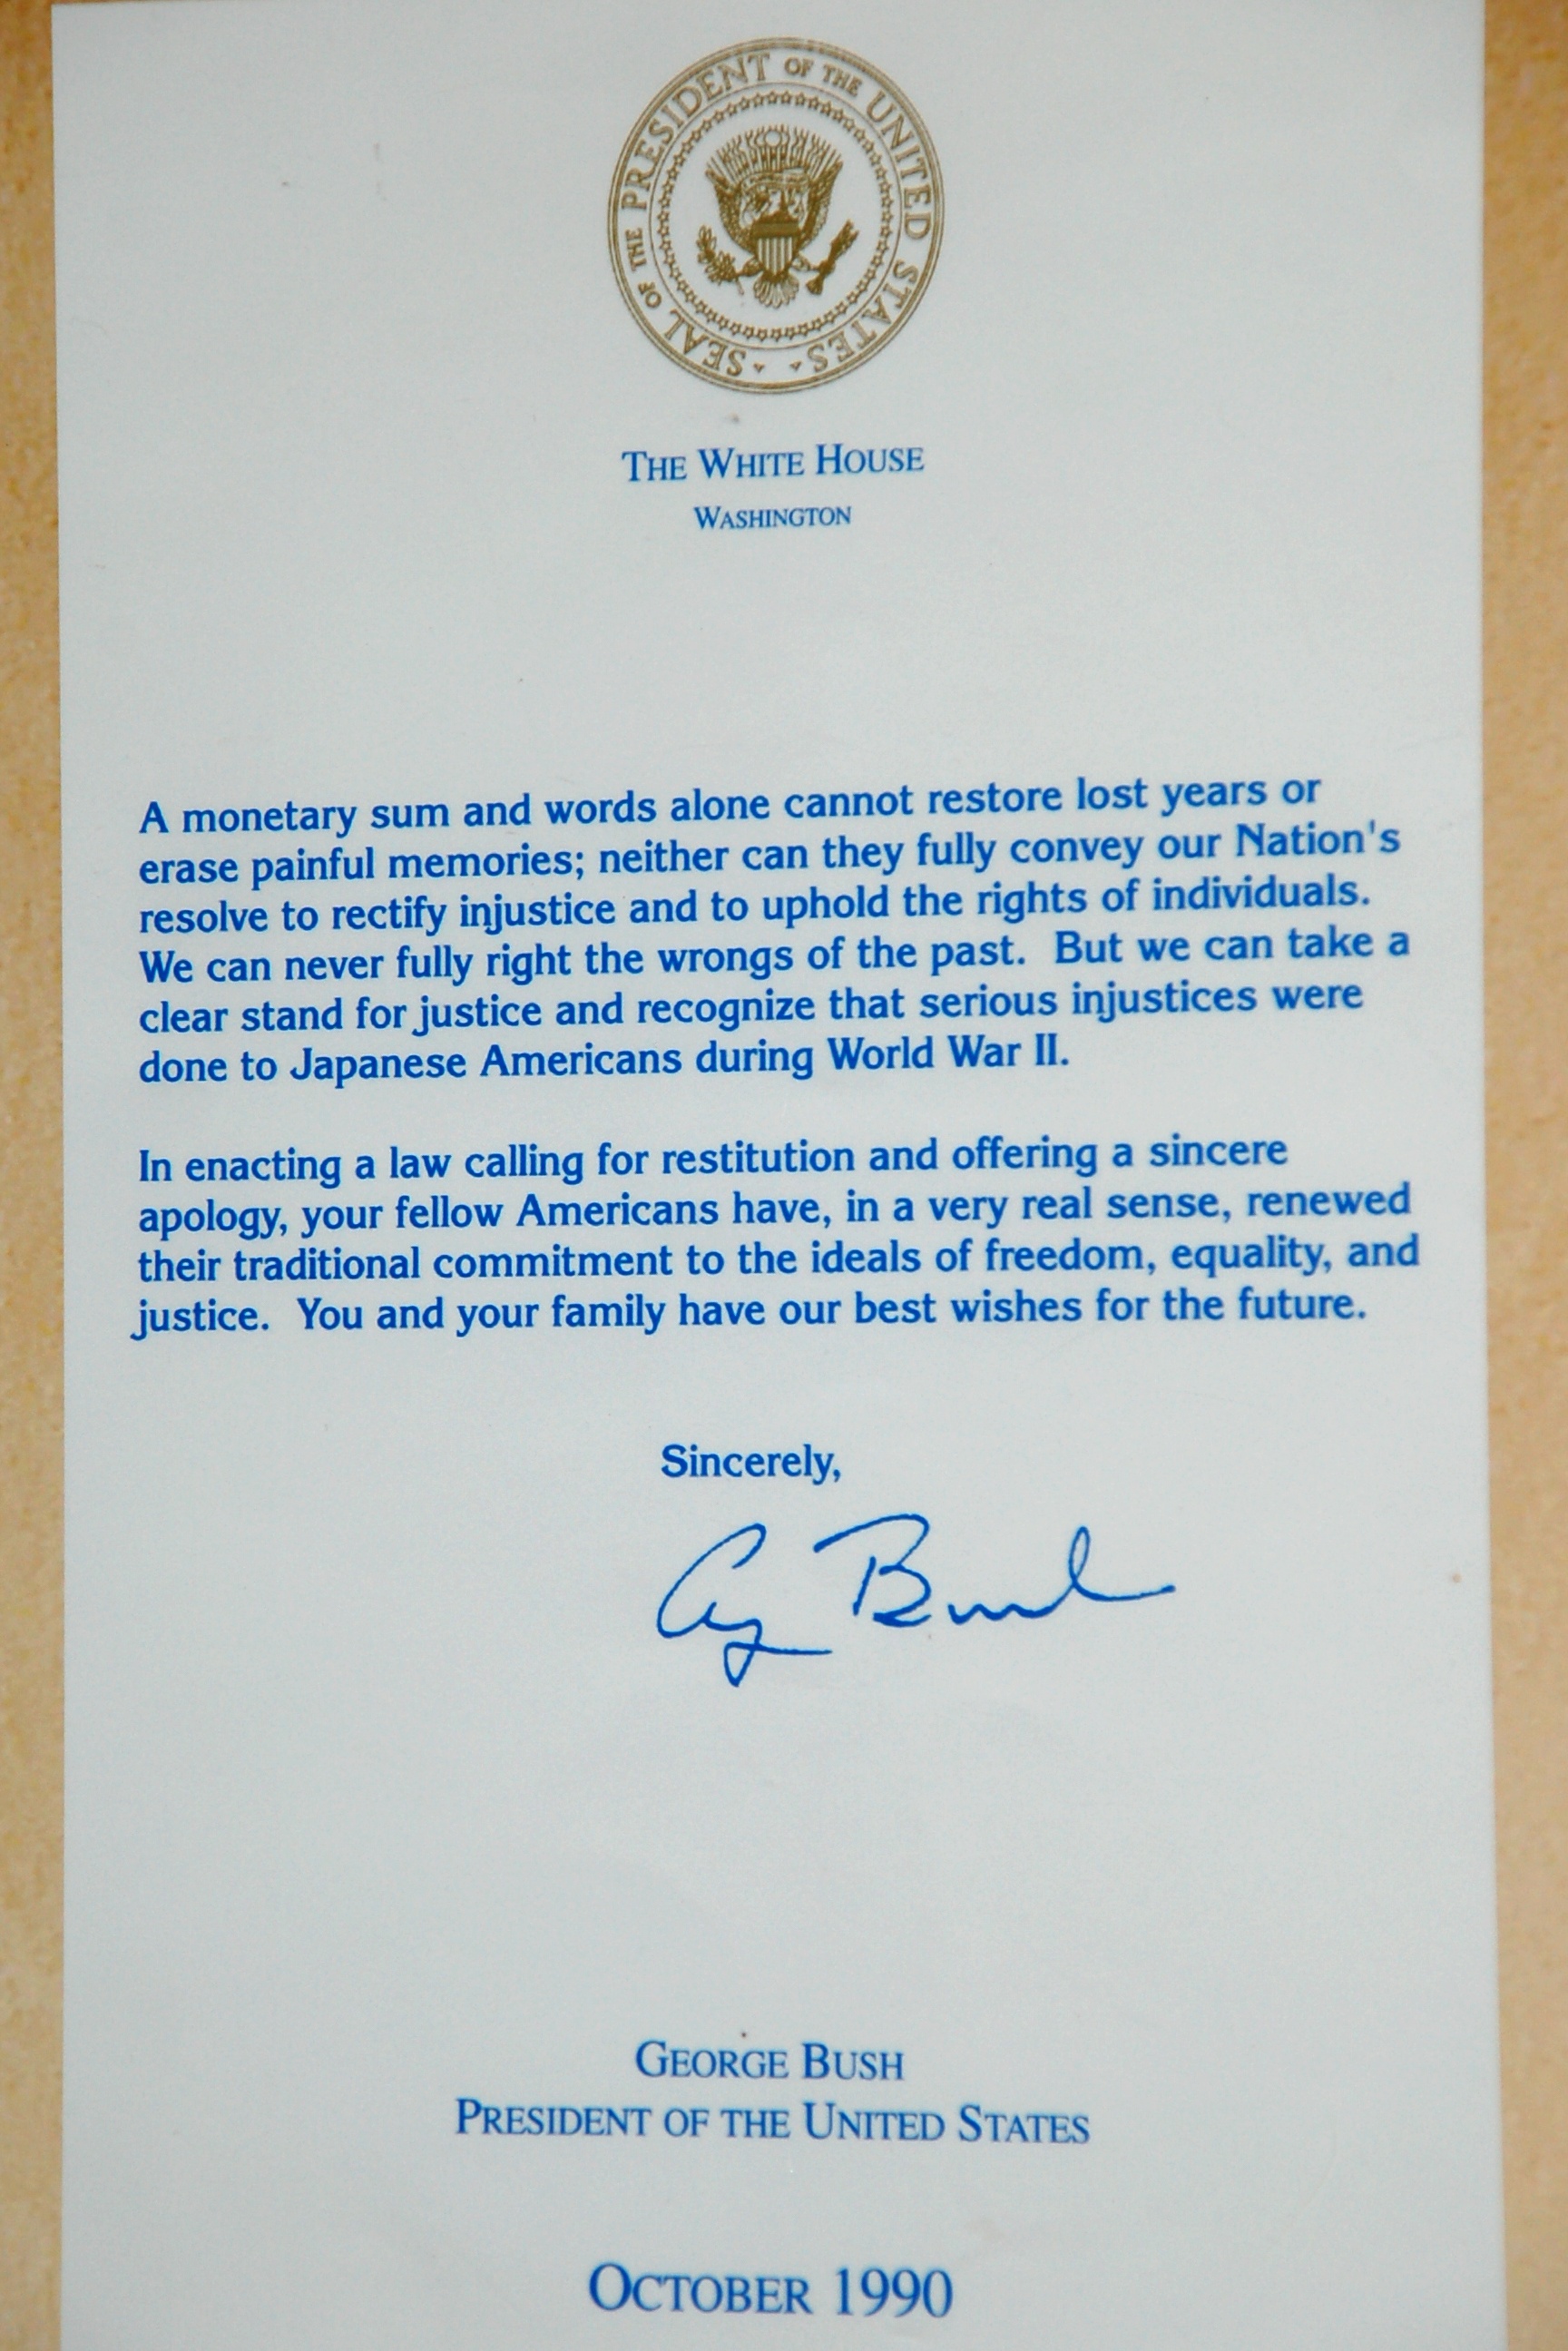 SEAL OF THE PRESIDENT OF THE UNITED STATES
THE WHITE HOUSE
WASHINGTON
A monetary sum and words alone cannot restore lost years or
erase painful memories; neither can they fully convey our Nation's
resolve to rectify injustice and to uphold the rights of individuals.
We can never fully right the wrongs of the past. But we can take a
clear stand for justice and recognize that serious injustices were
done to Japanese Americans during World War II.
In enacting a law calling for restitution and offering a sincere
apology, your fellow Americans have, in a very real sense, renewed
their traditional commitment to the ideals of freedom, equality, and
justice. You and your family have our best wishes for the future.
Sincerely,
G Bush
GEORGE BUSH
PRESIDENT OF THE UNITED STATES
OCTOBER 1990